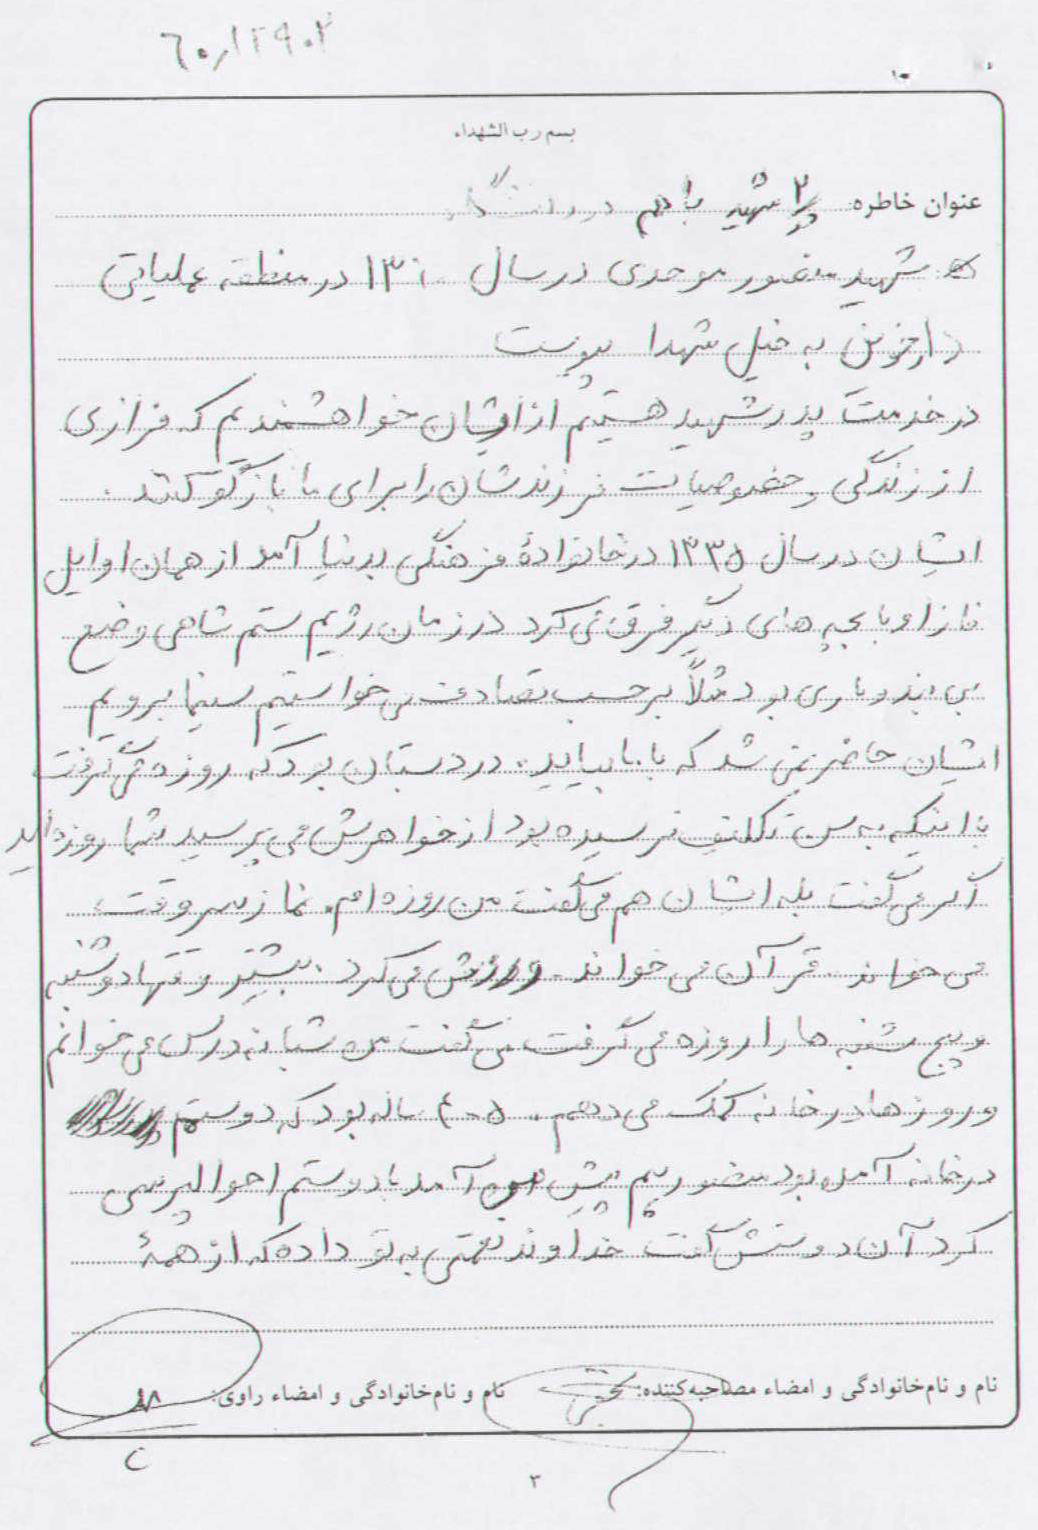 ۶۰/۱۲۹۰۲
بسم رب الشهداء
عنوان خاطره: ۲ شهید با هم در
شهید منصور موحدی در سال ۱۳۶۰ در منطقه عملیاتی
دارخوین به خیل شهدا پیوست
در خدمت پدر شهید هستیم از ایشان خواهشمندیم که فرازی
از زندگی و خصوصیات فرزندشان را برای ما بازگو کنند.
ایشان در سال ۱۳۳۵ در خانوادهٔ فرهنگی بدنیا آمد از همان اوایل
او با بچه های دیگر فرق می کرد در زمان رژیم ستم شاهی وضع
بی بندوباری بود مثلاً برحسب تصادف می خواستیم سینما برویم
ایشان حاضر نمی شد که با ما بیاید. در دبستان بود که روزه می گرفت
با اینکه به سن تکلیف نرسیده بود از خواهرش می پرسید شما روزه اید
اگر می گفت بله ایشان هم می گفت من روزه ام. نماز سر وقت
می خواند. قرآن می خواند. ورزش می کرد. بیشتر وقتها دوشنبه
و پنج شنبه ها را روزه می گرفت می گفت من شبانه درس می خوانم
و روزها در خانه کمک می دهم. ۵-۴ ساله بود که دوستم
در خانه آمده بود منصور هم پیش من آمد با دوستم احوالپرسی
کرد آن دوستش گفت خداوند نعمتی به تو داده که از همهٔ
نام و نام خانوادگی و امضاء مصاحبه کننده: نام و نام خانوادگی و امضاء راوی:
۲